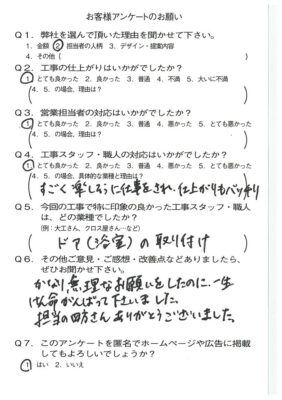 お客様アンケートのお願い
Q1. 弊社を選んで頂いた理由を聞かせて下さい。
1. 金額 ② 担当者の人柄 3. デザイン・提案内容
4. その他( )
Q2. 工事の仕上がりはいかがでしたか?
① とても良かった 2. 良かった 3. 普通 4. 不満 5. 大いに不満
(4. 5. の場合、理由は? )
Q3. 営業担当者の対応はいかがでしたか?
① とても良かった 2. 良かった 3. 普通 4. 悪かった 5. とても悪かった
(4. 5. の場合、理由は? )
Q4. 工事スタッフ・職人の対応はいかがでしたか?
① とても良かった 2. 良かった 3. 普通 4. 悪かった 5. とても悪かった
(4. 5. の場合、具体的な業種と理由は? )
すごく楽しそうに仕事をされ、仕上がりもバッチリ
Q5. 今回の工事で特に印象の良かった工事スタッフ・職人
は、どの業種でしたか?
(例:大工さん、クロス屋さん…など)
ドア(浴室)の取り付け
Q6. その他ご意見・ご感想・改善点などありましたら、
ぜひお聞かせ下さい。
かなり無理なお願いをしたのに、一生
けん命がんばって下さいました。
担当の
さんありがとうございました。
Q7. このアンケートを匿名でホームページや広告に掲載
してもよろしいでしょうか?
① はい 2. いいえ